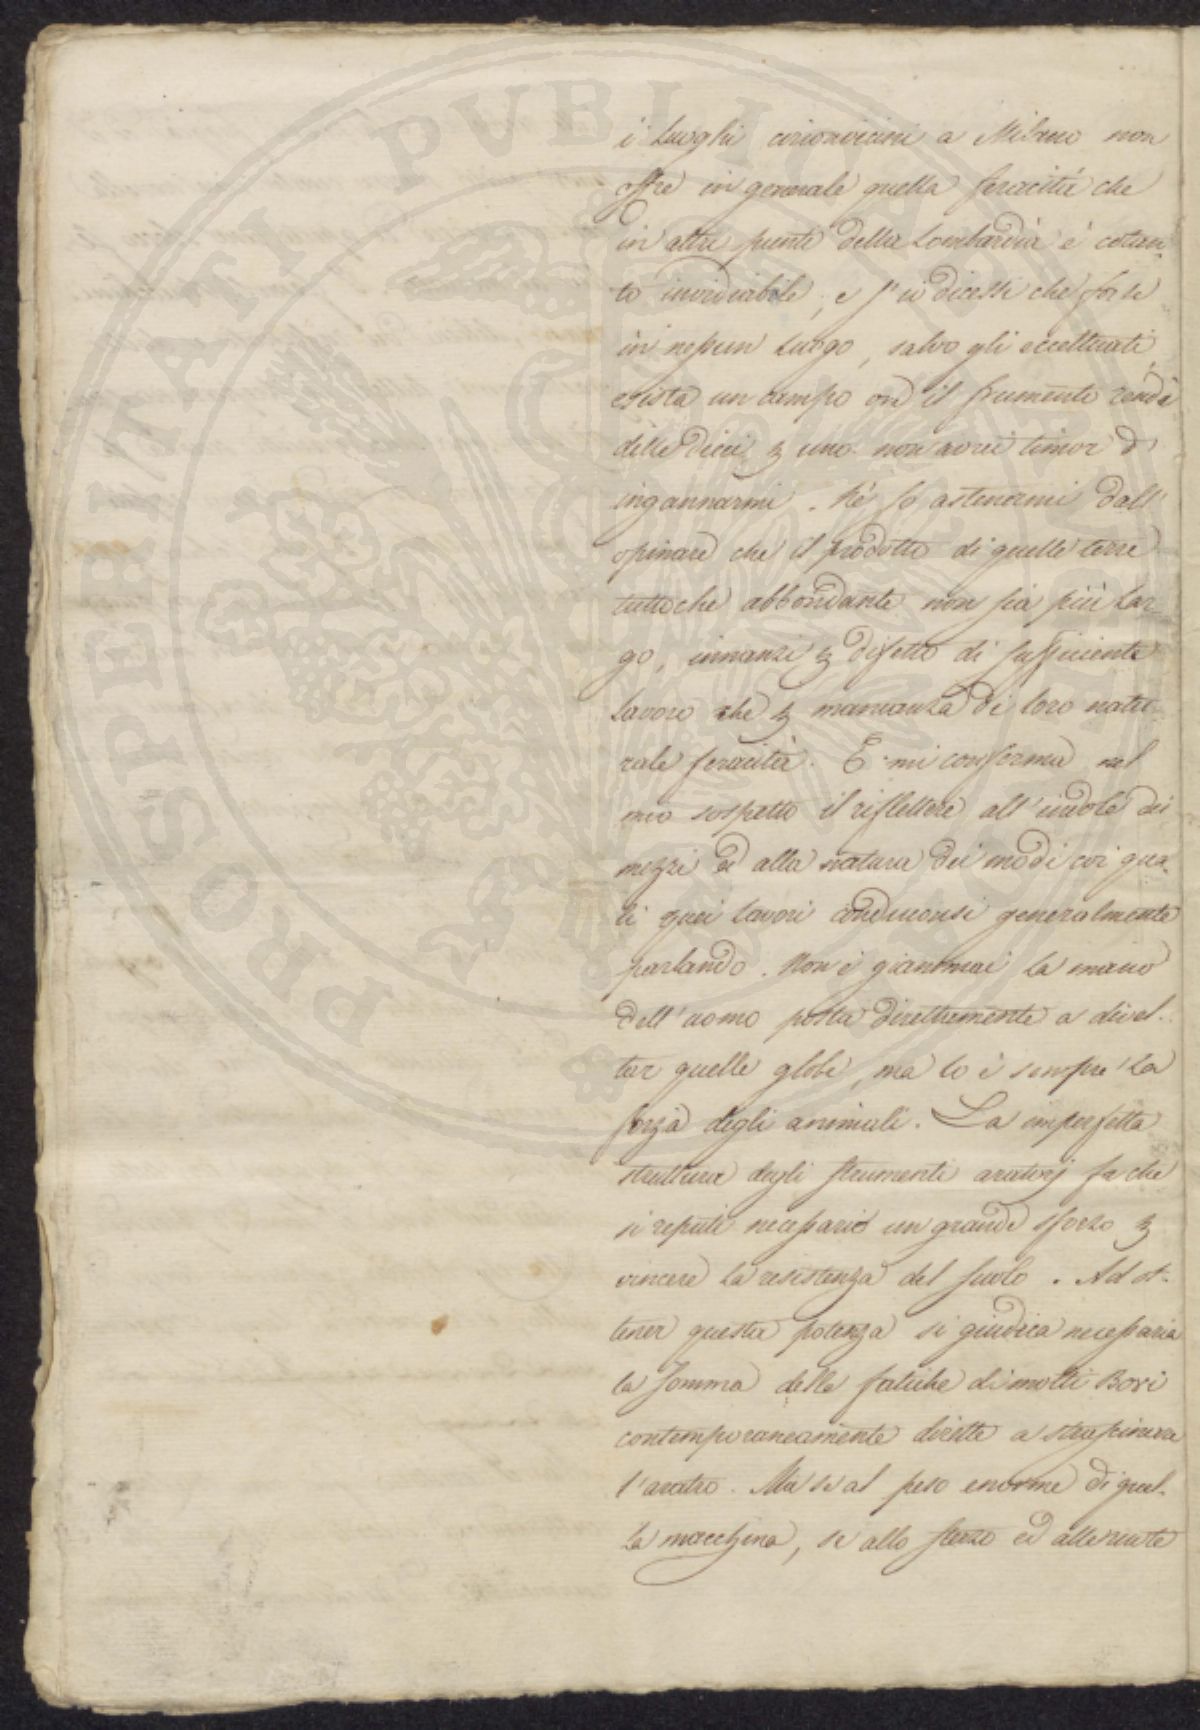 PROSPERITATI PUBLICAE
i luoghi circonvicini a Milano non
offre in generale quella feracità che
in altri punti della Lombardia è cotan-
to invidiabile, e s'io dicessi che forse
in nessun luogo, salvo gli eccettuati,
esista un campo ove il frumento renda
delle dieci per uno non avrei timor d'
ingannarmi. Nè so astenermi dall'
opinare che il prodotto di quelle terre
tuttochè abbondante non sia più lar-
go, innanzi per difetto di sufficiente
lavoro che per mancanza di loro natu-
rale feracità. E mi conferma nel
mio sospetto il riflettere all'indole dei
mezzi ed alla natura dei modi coi qua-
li quei lavori conduconsi generalmente
parlando. Non è giammai la mano
dell'uomo posta direttamente a divel-
tar quelle glebe, ma lo è sempre la
forza degli animali. La imperfetta
struttura degli strumenti aratorj fa che
si reputi necessario un grande sforzo per
vincere la resistenza del suolo. Ad ot-
tener questa potenza si giudica necessaria
la somma delle fatiche di molti Bovi
contemporaneamente dirette a strascinare
l'aratro. Ma se al peso enorme di quel-
la macchina, se allo sterzo ed alle ruote